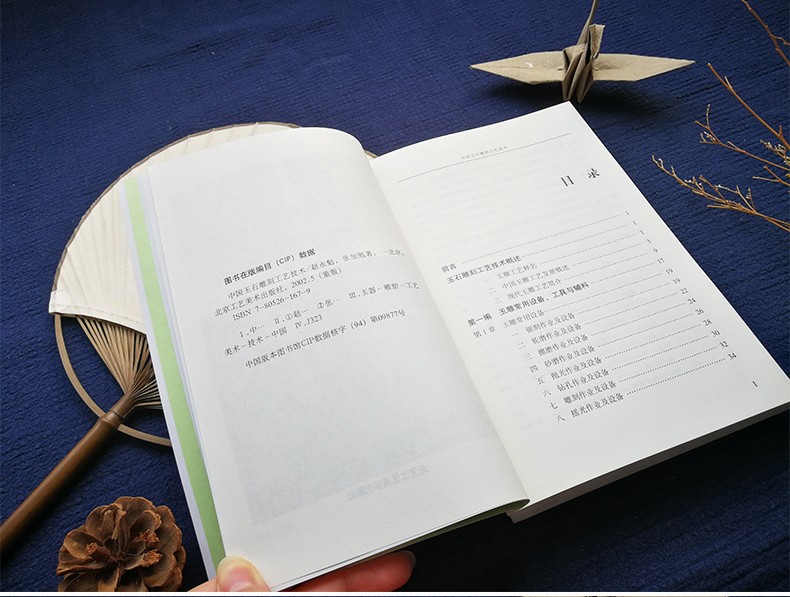 图书在版编目（CIP）数据
中国玉石雕刻工艺技术/赵永魁，张加勉著．—北京：
北京工艺美术出版社，2002.5（重版）
ISBN 7-80526-167-9
Ⅰ.中… Ⅱ.①赵… ②张… Ⅲ.玉器-雕塑-工艺
美术-技术-中国 Ⅳ.J323
中国版本图书馆CIP数据核字（94）第09877号
中国玉石雕刻工艺技术
目 录
前言 1
玉石雕刻工艺技术概述 1
一 玉雕工艺释名 1
二 中国玉雕工艺发展概述 2
三 现代玉雕工艺简介 14
第一编 玉雕常用设备、工具与辅料 19
第1章 玉雕常用设备 22
一 锯割作业及设备 24
二 轮磨作业及设备 26
三 擦磨作业及设备 28
四 砂磨作业及设备 30
五 抛光作业及设备 32
六 钻孔作业及设备 34
七 雕刻作业及设备
八 摇光作业及设备
1